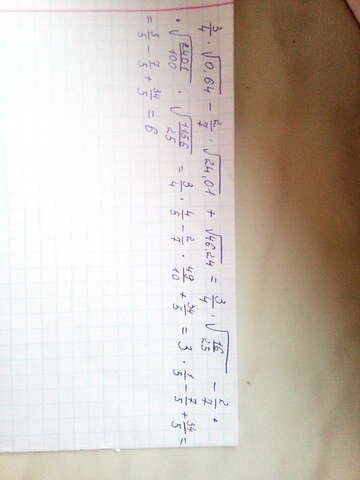 3/4 · √0,64 − 2/7 · √24,01 + √46,24 = 3/4 · √16/25 − 2/7 ·
· √2401/100 · √1156/25 = 3/4 · 4/5 − 2/7 · 49/10 + 34/5 = 3 · 1/5 − 7/5 + 34/5 =
= 3/5 − 7/5 + 34/5 = 6